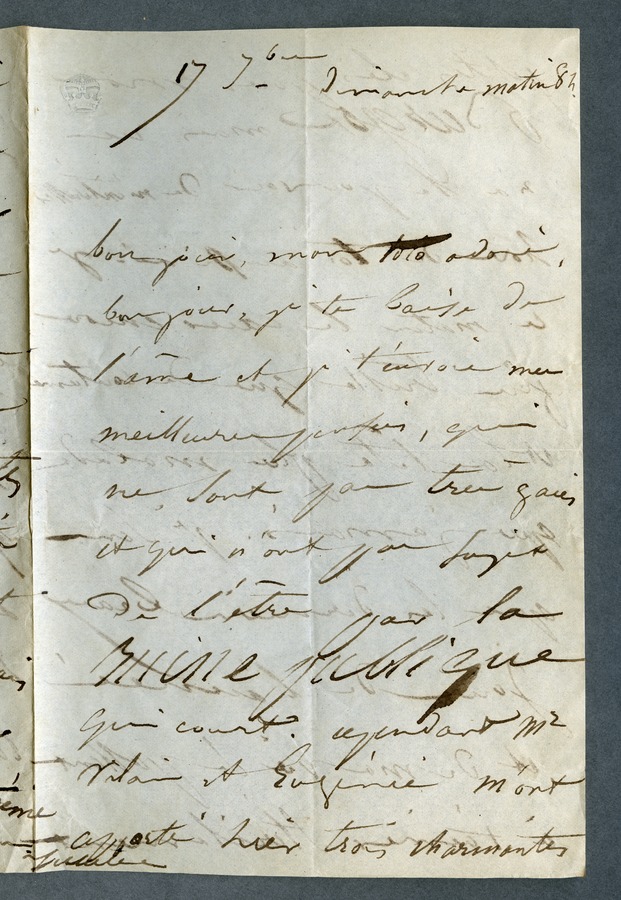 17 7bre
Dimanche matin 8h.
bonjour, mon toto adoré,
bonjour, je te baise de
l'âme et je t'envoie mes
meilleures pensées, qui
ne sont pas très gaies
et qui n'ont pas sujet
de l'être par la
ruine publique
qui court. cependant Mr
Vilain et Eugénie m'ont
apporté hier trois charmantes